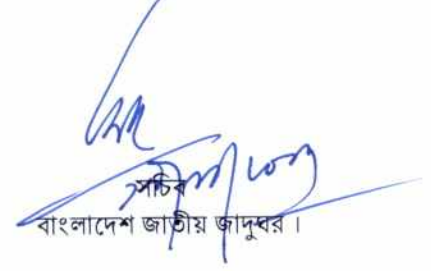 সচিব
বাংলাদেশ জাতীয় জাদুঘর ।